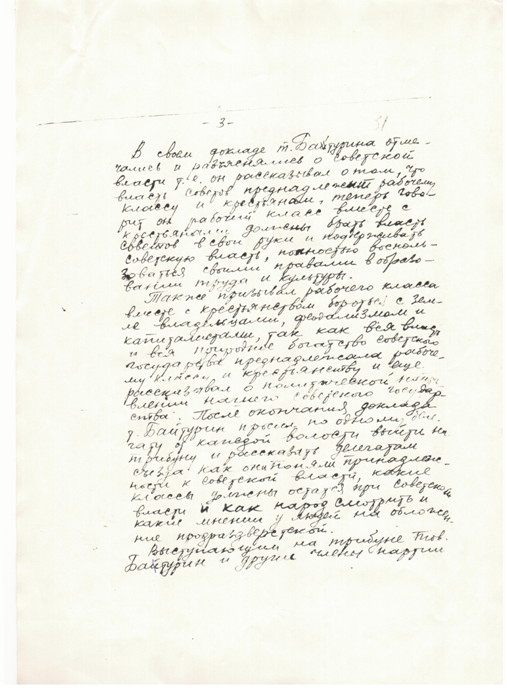 - 3 -
51
В своем докладе т. Байтурина отме-
чались и разъяснялись о советской
власти т.е. он рассказывал о том, что
власть советов преднадлежит рабочему
классу и крестьянам, теперь гово-
рит он рабочий класс вместе с
крестьянами должны брать власть
советов в свои руки и поддерживать
советскую власть, полностью восполь-
зоваться своими правами в образо-
вании труда и культуры.
Также призывал рабочего класса
вместе с крестьянством бороться с зем-
ле владельцами, феодализмом и
капиталистами, так как вся власть
и вся природные богатство советского
государства преднадлежала рабоче-
му классу и крестьянству и еще
рассказывал о политической напра-
влении нашего советского государ-
ства. После окончания доклада
т. Байтурин просил по одному деле-
гату от каждой волости выйти на
трибуну и рассказать делегатам
съезда как они поняли принадлеж-
ности к советской власти, какие
классы должны остатся при советской
власти и как народ смотрить и
какие мнении у людей на обложе-
ние продразверсткой.
Выступающим на трибуне тов.
Байтурин и другие члены партии